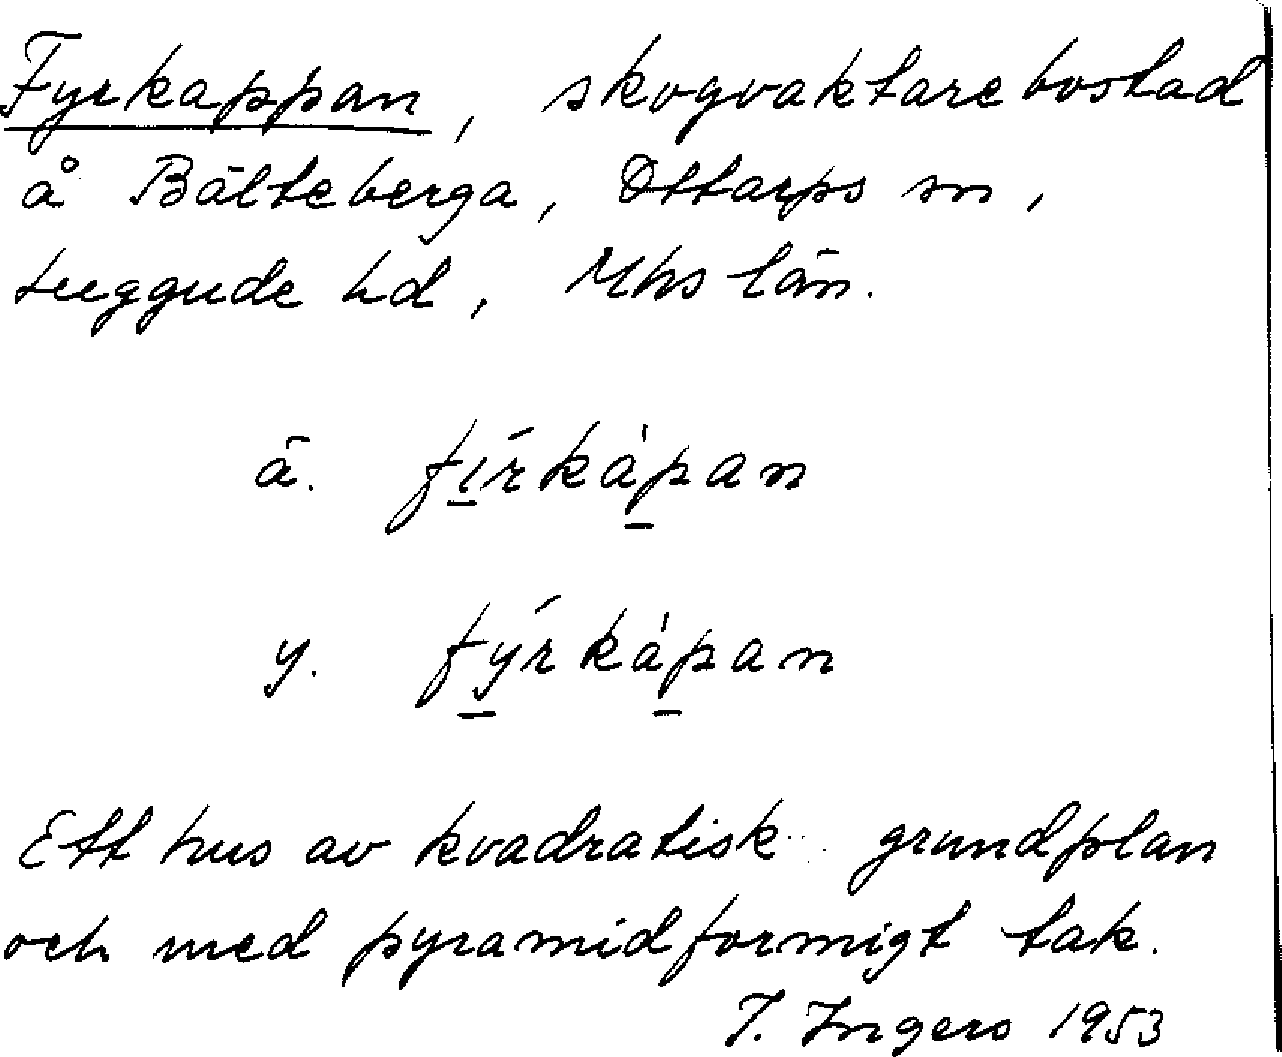 Fyrkappan, skogvaktarebostad
å Bälteberga, Ottarps sn,
Luggude hd, Mhs län.
ä. fírkàpan
y. fýrkàpan
Ett hus av kvadratisk grundplan
och med pyramidformigt tak.
I. Ingers 1953